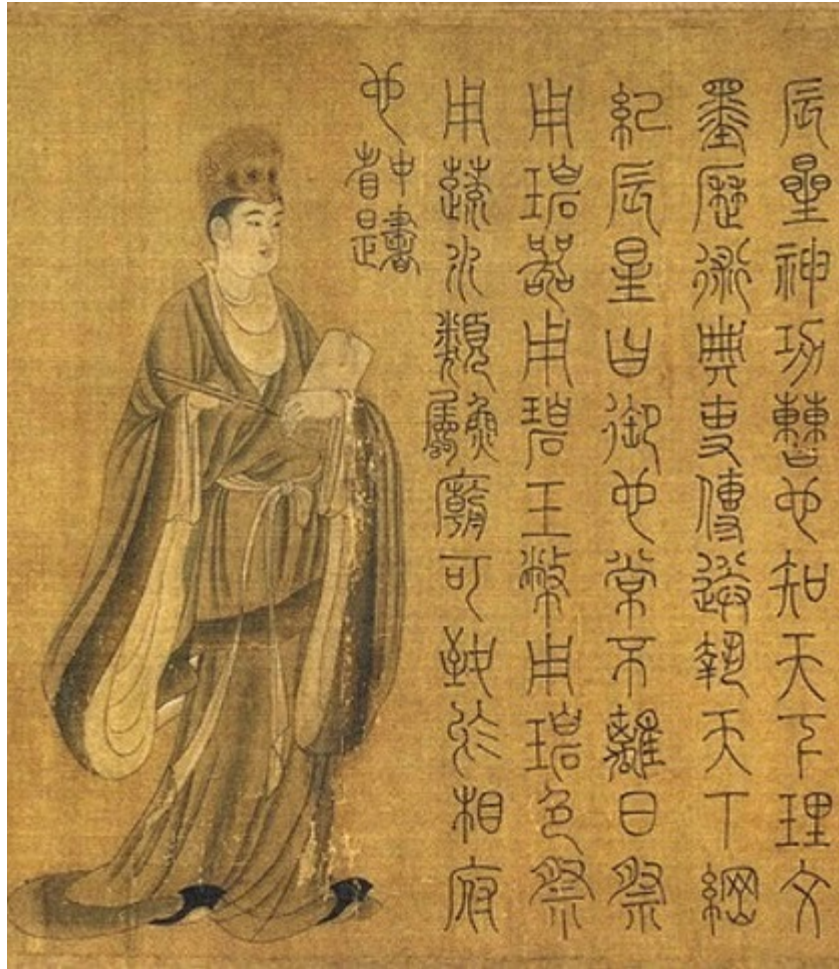 辰星神功曹也知天下理文
墨歷術典吏傳送執天下綱
紀辰星日御也常不離日祭
用碧器用碧玉幣用碧色祭
用蔬水類魚屬廟可致於相府
也中書省是